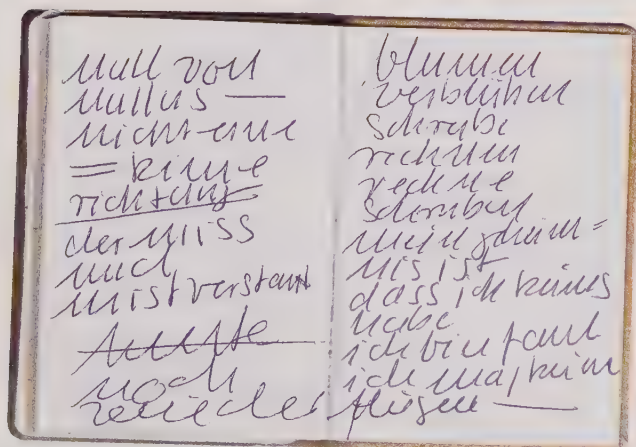 null von
nullus —
nicht eine
= keine
richtung
der
und
noch
blumen
verblühen
schreibe
rechnen
rechne
schreiben
mein geheim=
nis ist
dass ich keines
habe
ich bin faul
ich mag keine
fliegen —